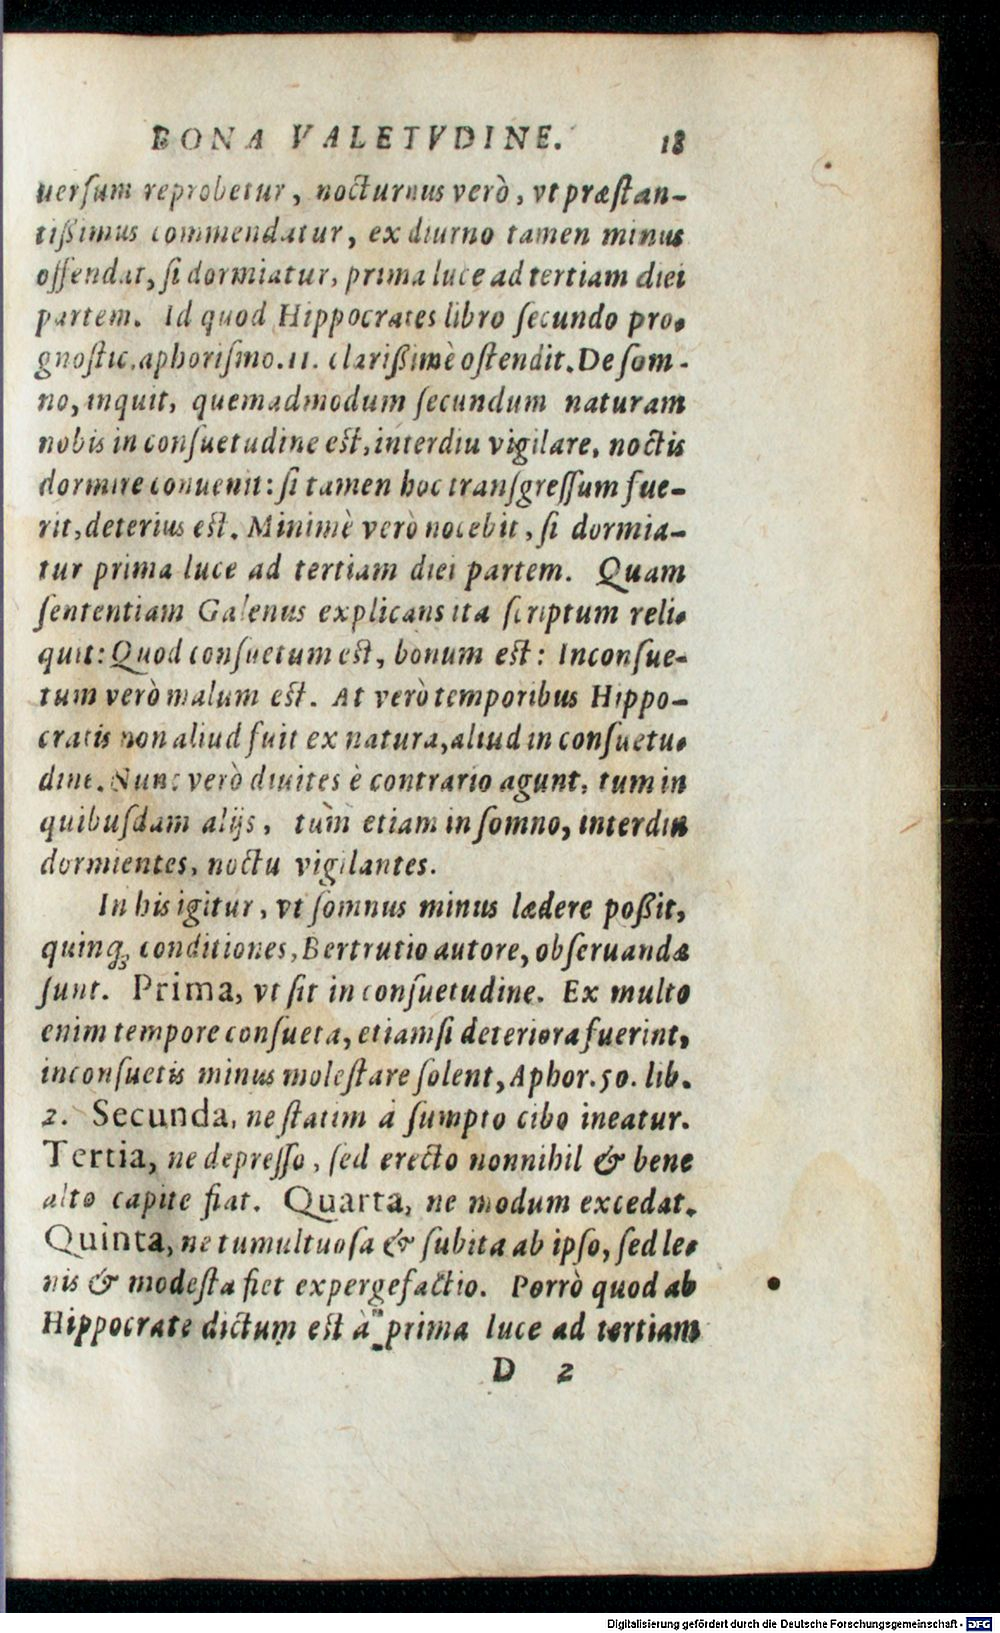 BONA VALETVDINE. 18
uersum reprobetur, nocturnus verò, vt præstan-
tißimus commendatur, ex diurno tamen minus
offendat, si dormiatur, prima luce ad tertiam diei
partem. Id quod Hippocrates libro secundo pro-
gnostic. aphorismo. 11. clarißimè ostendit. De som-
no, inquit, quemadmodum secundum naturam
nobis in consuetudine est, interdiu vigilare, noctis
dormire conuenit: si tamen hoc transgressum fue-
rit, deterius est. Minimè verò nocebit, si dormia-
tur prima luce ad tertiam diei partem. Quam
sententiam Galenus explicans ita scriptum reli-
quit: Quod consuetum est, bonum est: Inconsue-
tum verò malum est. At verò temporibus Hippo-
cratis non aliud fuit ex natura, aliud in consuetu-
dine. Nunc verò diuites è contrario agunt, tum in
quibusdam alijs, tùm etiam in somno, interdiu
dormientes, noctu vigilantes.
In his igitur, vt somnus minus lædere poßit,
quinq; conditiones, Bertrutio autore, obseruandæ
sunt. Prima, vt sit in consuetudine. Ex multo
enim tempore consueta, etiamsi deteriora fuerint,
inconsuetis minus molestare solent, Aphor. 50. lib.
2. Secunda, ne statim à sumpto cibo ineatur.
Tertia, ne depresso, sed erecto nonnihil & bene
alto capite fiat. Quarta, ne modum excedat.
Quinta, ne tumultuosa & subita ab ipso, sed le-
nis & modesta fiet expergefactio. Porrò quod ab
Hippocrate dictum est à prima luce ad tertiam
D 2
Digitalisierung gefördert durch die Deutsche Forschungsgemeinschaft - DFG